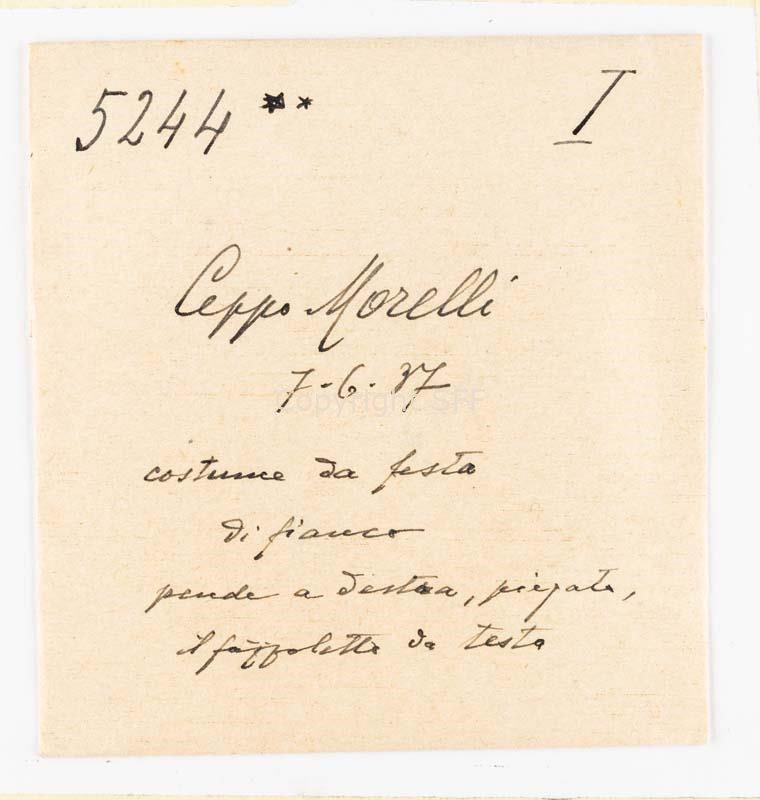 5244 ** I
Ceppo Morelli
7-6-37
Copyright SFF
costume da festa
di fianco
pende a destra, piegato,
il fazzoletto da testa